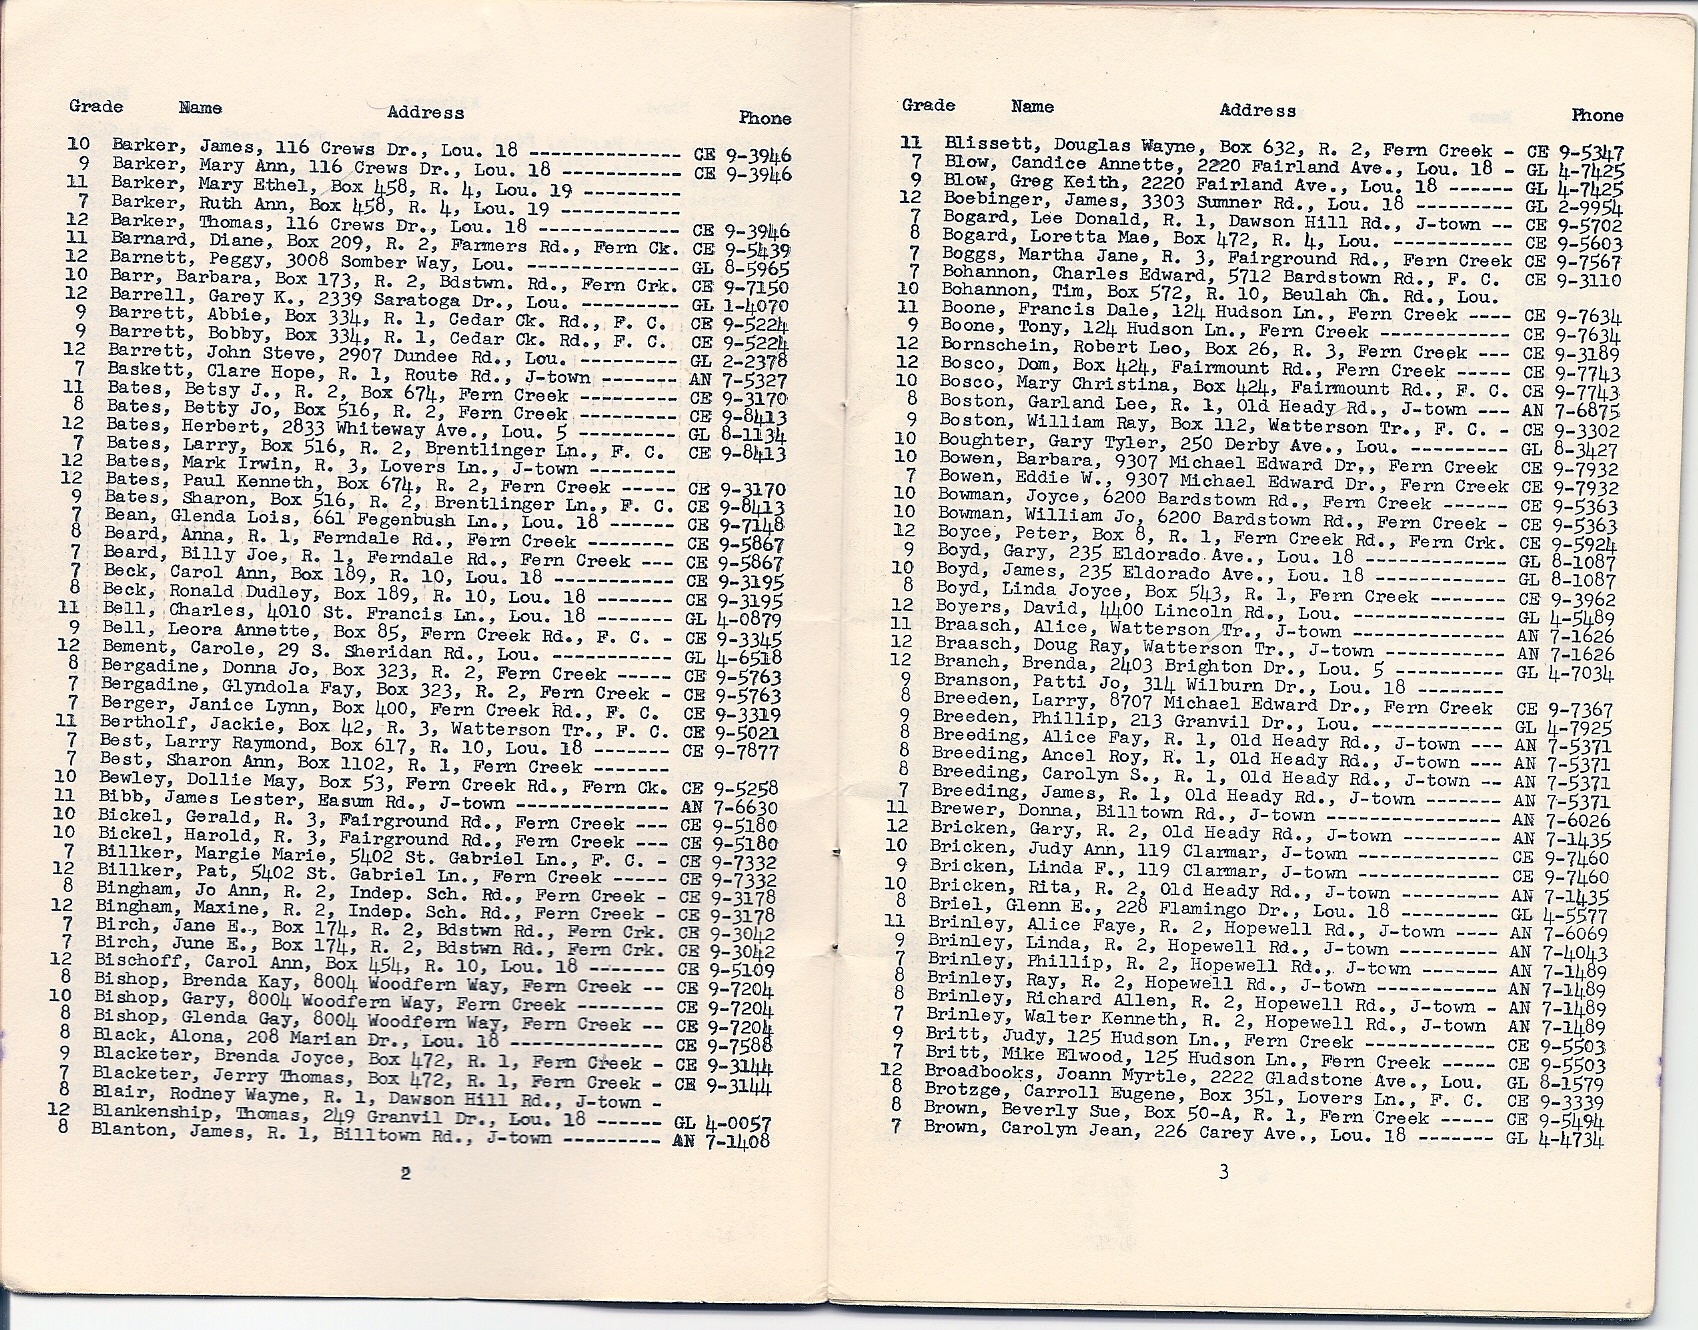 Grade Name Address Phone
10 Barker, James, 116 Crews Dr., Lou. 18 -------------- CE 9-3946
9 Barker, Mary Ann, 116 Crews Dr., Lou. 18 ----------- CE 9-3946
11 Barker, Mary Ethel, Box 458, R. 4, Lou. 19 ---------
7 Barker, Ruth Ann, Box 458, R. 4, Lou. 19 -----------
12 Barker, Thomas, 116 Crews Dr., Lou. 18 ------------- CE 9-3946
11 Barnard, Diane, Box 209, R. 2, Farmers Rd., Fern Ck. CE 9-5439
12 Barnett, Peggy, 3008 Somber Way, Lou. -------------- GL 8-5965
10 Barr, Barbara, Box 173, R. 2, Bdstwn. Rd., Fern Crk. CE 9-7150
12 Barrell, Garey K., 2339 Saratoga Dr., Lou. --------- GL 1-4070
9 Barrett, Abbie, Box 334, R. 1, Cedar Ck. Rd., F. C. CE 9-5224
9 Barrett, Bobby, Box 334, R. 1, Cedar Ck. Rd., F. C. CE 9-5224
12 Barrett, John Steve, 2907 Dundee Rd., Lou. --------- GL 2-2378
7 Baskett, Clare Hope, R. 1, Route Rd., J-town ------- AN 7-5327
11 Bates, Betsy J., R. 2, Box 674, Fern Creek --------- CE 9-3170
8 Bates, Betty Jo, Box 516, R. 2, Fern Creek --------- CE 9-8413
12 Bates, Herbert, 2833 Whiteway Ave., Lou. 5 --------- GL 8-1134
7 Bates, Larry, Box 516, R. 2, Brentlinger Ln., F. C. CE 9-8413
12 Bates, Mark Irwin, R. 3, Lovers Ln., J-town --------
12 Bates, Paul Kenneth, Box 674, R. 2, Fern Creek ----- CE 9-3170
9 Bates, Sharon, Box 516, R. 2, Brentlinger Ln., F. C. CE 9-8413
7 Bean, Glenda Lois, 661 Fegenbush Ln., Lou. 18 ------ CE 9-7148
8 Beard, Anna, R. 1, Ferndale Rd., Fern Creek -------- CE 9-5867
7 Beard, Billy Joe, R. 1, Ferndale Rd., Fern Creek --- CE 9-5867
7 Beck, Carol Ann, Box 189, R. 10, Lou. 18 ----------- CE 9-3195
8 Beck, Ronald Dudley, Box 189, R. 10, Lou. 18 ------- CE 9-3195
11 Bell, Charles, 4010 St. Francis Ln., Lou. 18 ------- GL 4-0879
9 Bell, Leora Annette, Box 85, Fern Creek Rd., F. C. - CE 9-3345
12 Bement, Carole, 29 S. Sheridan Rd., Lou. ----------- GL 4-6518
8 Bergadine, Donna Jo, Box 323, R. 2, Fern Creek ----- CE 9-5763
7 Bergadine, Glyndola Fay, Box 323, R. 2, Fern Creek - CE 9-5763
7 Berger, Janice Lynn, Box 400, Fern Creek Rd., F. C. CE 9-3319
11 Bertholf, Jackie, Box 42, R. 3, Watterson Tr., F. C. CE 9-5021
7 Best, Larry Raymond, Box 617, R. 10, Lou. 18 ------- CE 9-7877
7 Best, Sharon Ann, Box 1102, R. 1, Fern Creek -------
10 Bewley, Dollie May, Box 53, Fern Creek Rd., Fern Ck. CE 9-5258
11 Bibb, James Lester, Easum Rd., J-town -------------- AN 7-6630
10 Bickel, Gerald, R. 3, Fairground Rd., Fern Creek --- CE 9-5180
10 Bickel, Harold, R. 3, Fairground Rd., Fern Creek --- CE 9-5180
7 Billker, Margie Marie, 5402 St. Gabriel Ln., F. C. - CE 9-7332
12 Billker, Pat, 5402 St. Gabriel Ln., Fern Creek ----- CE 9-7332
8 Bingham, Jo Ann, R. 2, Indep. Sch. Rd., Fern Creek - CE 9-3178
12 Bingham, Maxine, R. 2, Indep. Sch. Rd., Fern Creek - CE 9-3178
7 Birch, Jane E., Box 174, R. 2, Bdstwn Rd., Fern Crk. CE 9-3042
7 Birch, June E., Box 174, R. 2, Bdstwn Rd., Fern Crk. CE 9-3042
12 Bischoff, Carol Ann, Box 454, R. 10, Lou. 18 ------- CE 9-5109
8 Bishop, Brenda Kay, 8004 Woodfern Way, Fern Creek -- CE 9-7204
10 Bishop, Gary, 8004 Woodfern Way, Fern Creek -------- CE 9-7204
8 Bishop, Glenda Gay, 8004 Woodfern Way, Fern Creek -- CE 9-7204
8 Black, Alona, 208 Marian Dr., Lou. 18 -------------- CE 9-7588
9 Blacketer, Brenda Joyce, Box 472, R. 1, Fern Creek - CE 9-3144
7 Blacketer, Jerry Thomas, Box 472, R. 1, Fern Creek - CE 9-3144
8 Blair, Rodney Wayne, R. 1, Dawson Hill Rd., J-town -
12 Blankenship, Thomas, 249 Granvil Dr., Lou. 18 ------ GL 4-0057
8 Blanton, James, R. 1, Billtown Rd., J-town --------- AN 7-1408
2
Grade Name Address Phone
11 Blissett, Douglas Wayne, Box 632, R. 2, Fern Creek - CE 9-5347
7 Blow, Candice Annette, 2220 Fairland Ave., Lou. 18 - GL 4-7425
9 Blow, Greg Keith, 2220 Fairland Ave., Lou. 18 ------ GL 4-7425
12 Boebinger, James, 3303 Sumner Rd., Lou. 18 --------- GL 2-9954
7 Bogard, Lee Donald, R. 1, Dawson Hill Rd., J-town -- CE 9-5702
8 Bogard, Loretta Mae, Box 472, R. 4, Lou. ----------- CE 9-5603
7 Boggs, Martha Jane, R. 3, Fairground Rd., Fern Creek CE 9-7567
7 Bohannon, Charles Edward, 5712 Bardstown Rd., F. C. CE 9-3110
10 Bohannon, Tim, Box 572, R. 10, Beulah Ch. Rd., Lou.
11 Boone, Francis Dale, 124 Hudson Ln., Fern Creek ---- CE 9-7634
9 Boone, Tony, 124 Hudson Ln., Fern Creek ------------ CE 9-7634
12 Bornschein, Robert Leo, Box 26, R. 3, Fern Creek --- CE 9-3189
12 Bosco, Dom, Box 424, Fairmount Rd., Fern Creek ----- CE 9-7743
10 Bosco, Mary Christina, Box 424, Fairmount Rd., F. C. CE 9-7743
8 Boston, Garland Lee, R. 1, Old Heady Rd., J-town --- AN 7-6875
9 Boston, William Ray, Box 112, Watterson Tr., F. C. - CE 9-3302
10 Boughter, Gary Tyler, 250 Derby Ave., Lou. --------- GL 8-3427
10 Bowen, Barbara, 9307 Michael Edward Dr,, Fern Creek CE 9-7932
7 Bowen, Eddie W., 9307 Michael Edward Dr., Fern Creek CE 9-7932
10 Bowman, Joyce, 6200 Bardstown Rd., Fern Creek ------ CE 9-5363
10 Bowman, William Jo, 6200 Bardstown Rd., Fern Creek - CE 9-5363
12 Boyce, Peter, Box 8, R. 1, Fern Creek Rd., Fern Crk. CE 9-5924
9 Boyd, Gary, 235 Eldorado Ave., Lou. 18 ------------- GL 8-1087
10 Boyd, James, 235 Eldorado Ave., Lou. 18 ------------ GL 8-1087
8 Boyd, Linda Joyce, Box 543, R. 1, Fern Creek ------- CE 9-3962
12 Boyers, David, 4400 Lincoln Rd., Lou. -------------- GL 4-5489
11 Braasch, Alice, Watterson Tr., J-town -------------- AN 7-1626
12 Braasch, Doug Ray, Watterson Tr., J-town ----------- AN 7-1626
12 Branch, Brenda, 2403 Brighton Dr., Lou. 5 ---------- GL 4-7034
9 Branson, Patti Jo, 314 Wilburn Dr., Lou. 18 --------
8 Breeden, Larry, 8707 Michael Edward Dr., Fern Creek CE 9-7367
9 Breeden, Phillip, 213 Granvil Dr., Lou. ------------ GL 4-7925
8 Breeding, Alice Fay, R. 1, Old Heady Rd., J-town --- AN 7-5371
8 Breeding, Ancel Roy, R. 1, Old Heady Rd., J-town --- AN 7-5371
8 Breeding, Carolyn S., R. 1, Old Heady Rd., J-town -- AN 7-5371
7 Breeding, James, R. 1, Old Heady Rd., J-town ------- AN 7-5371
11 Brewer, Donna, Billtown Rd., J-town ---------------- AN 7-6026
12 Bricken, Gary, R. 2, Old Heady Rd., J-town --------- AN 7-1435
10 Bricken, Judy Ann, 119 Clarmar, J-town ------------- CE 9-7460
9 Bricken, Linda F., 119 Clarmar, J-town ------------- CE 9-7460
10 Bricken, Rita, R. 2, Old Heady Rd., J-town --------- AN 7-1435
8 Briel, Glenn E., 228 Flamingo Dr., Lou. 18 --------- GL 4-5577
11 Brinley, Alice Faye, R. 2, Hopewell Rd., J-town ---- AN 7-6069
9 Brinley, Linda, R. 2, Hopewell Rd., J-town --------- AN 7-4043
7 Brinley, Phillip, R. 2, Hopewell Rd., J-town ------- AN 7-1489
8 Brinley, Ray, R. 2, Hopewell Rd., J-town ----------- AN 7-1489
8 Brinley, Richard Allen, R. 2, Hopewell Rd., J-town - AN 7-1489
7 Brinley, Walter Kenneth, R. 2, Hopewell Rd., J-town AN 7-1489
9 Britt, Judy, 125 Hudson Ln., Fern Creek ------------ CE 9-5503
7 Britt, Mike Elwood, 125 Hudson Ln., Fern Creek ----- CE 9-5503
12 Broadbooks, Joann Myrtle, 2222 Gladstone Ave., Lou. GL 8-1579
8 Brotzge, Carroll Eugene, Box 351, Lovers Ln., F. C. CE 9-3339
8 Brown, Beverly Sue, Box 50-A, R. 1, Fern Creek ----- CE 9-5494
7 Brown, Carolyn Jean, 226 Carey Ave., Lou. 18 ------- GL 4-4734
3